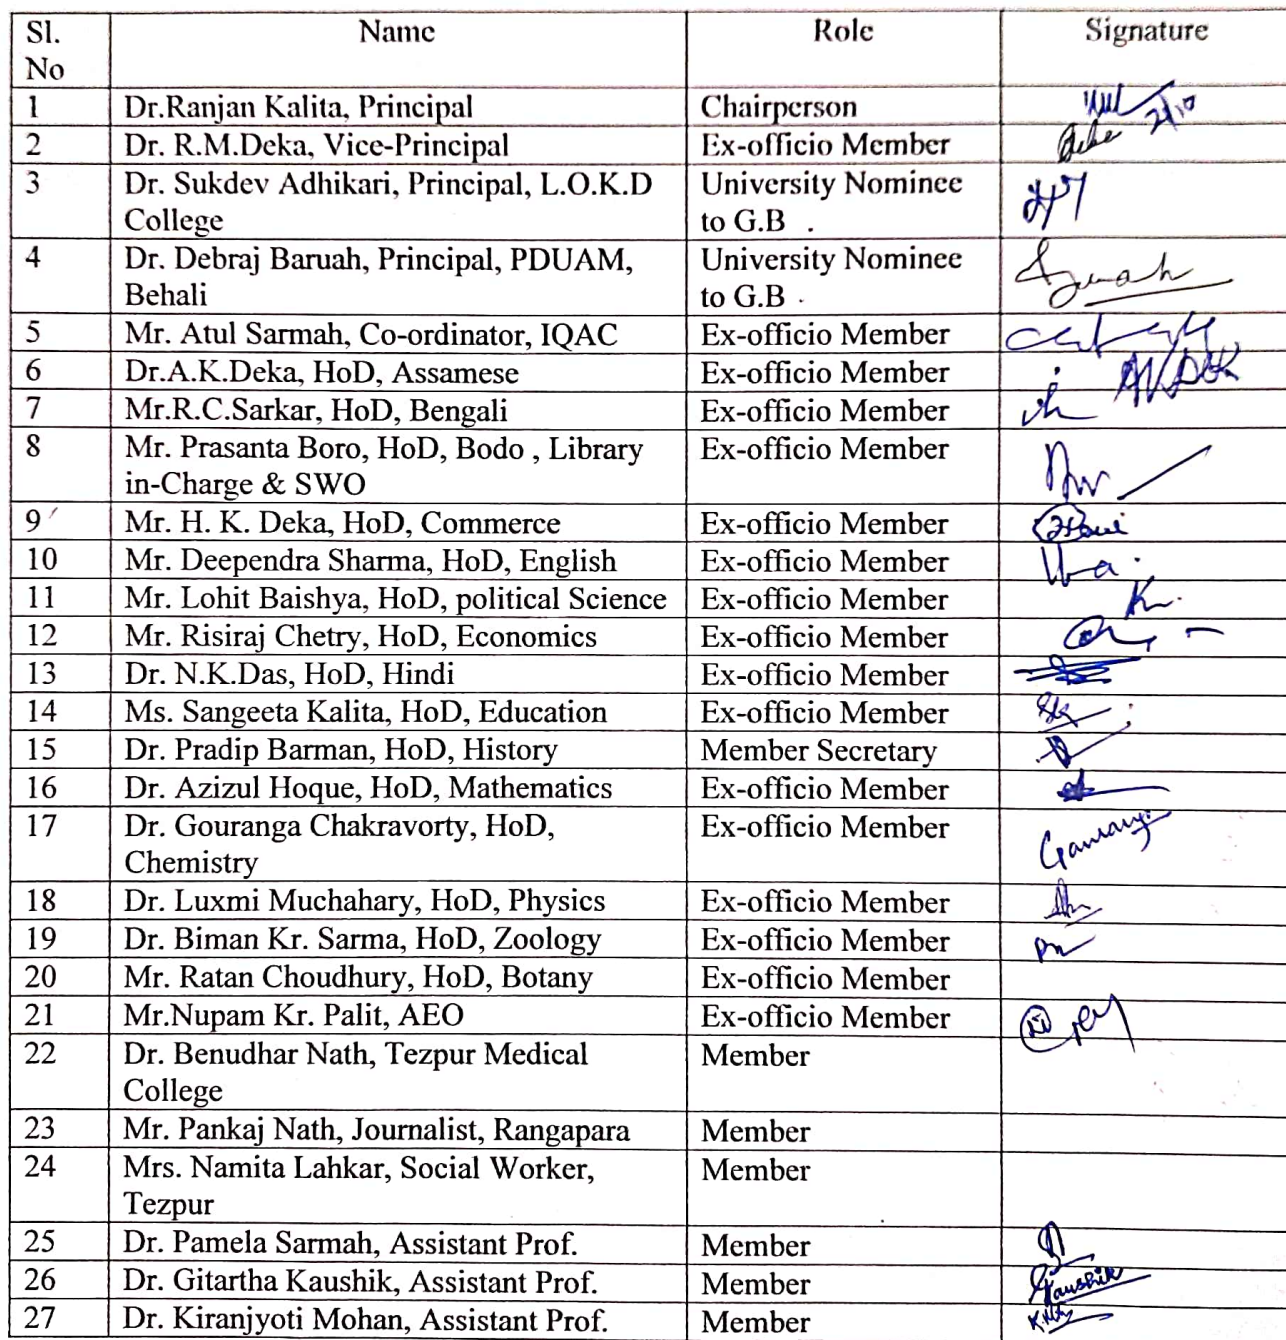 Sl. No Name Role Signature
1 Dr.Ranjan Kalita, Principal Chairperson
2 Dr. R.M.Deka, Vice-Principal Ex-officio Member
3 Dr. Sukdev Adhikari, Principal, L.O.K.D University Nominee
College to G.B .
4 Dr. Debraj Baruah, Principal, PDUAM, University Nominee
Behali to G.B .
5 Mr. Atul Sarmah, Co-ordinator, IQAC Ex-officio Member
6 Dr.A.K.Deka, HoD, Assamese Ex-officio Member
7 Mr.R.C.Sarkar, HoD, Bengali Ex-officio Member
8 Mr. Prasanta Boro, HoD, Bodo , Library Ex-officio Member
in-Charge & SWO
9 Mr. H. K. Deka, HoD, Commerce Ex-officio Member
10 Mr. Deependra Sharma, HoD, English Ex-officio Member
11 Mr. Lohit Baishya, HoD, political Science Ex-officio Member
12 Mr. Risiraj Chetry, HoD, Economics Ex-officio Member
13 Dr. N.K.Das, HoD, Hindi Ex-officio Member
14 Ms. Sangeeta Kalita, HoD, Education Ex-officio Member
15 Dr. Pradip Barman, HoD, History Member Secretary
16 Dr. Azizul Hoque, HoD, Mathematics Ex-officio Member
17 Dr. Gouranga Chakravorty, HoD, Ex-officio Member
Chemistry
18 Dr. Luxmi Muchahary, HoD, Physics Ex-officio Member
19 Dr. Biman Kr. Sarma, HoD, Zoology Ex-officio Member
20 Mr. Ratan Choudhury, HoD, Botany Ex-officio Member
21 Mr.Nupam Kr. Palit, AEO Ex-officio Member
22 Dr. Benudhar Nath, Tezpur Medical Member
College
23 Mr. Pankaj Nath, Journalist, Rangapara Member
24 Mrs. Namita Lahkar, Social Worker, Member
Tezpur
25 Dr. Pamela Sarmah, Assistant Prof. Member
26 Dr. Gitartha Kaushik, Assistant Prof. Member GKaushik
27 Dr. Kiranjyoti Mohan, Assistant Prof. Member